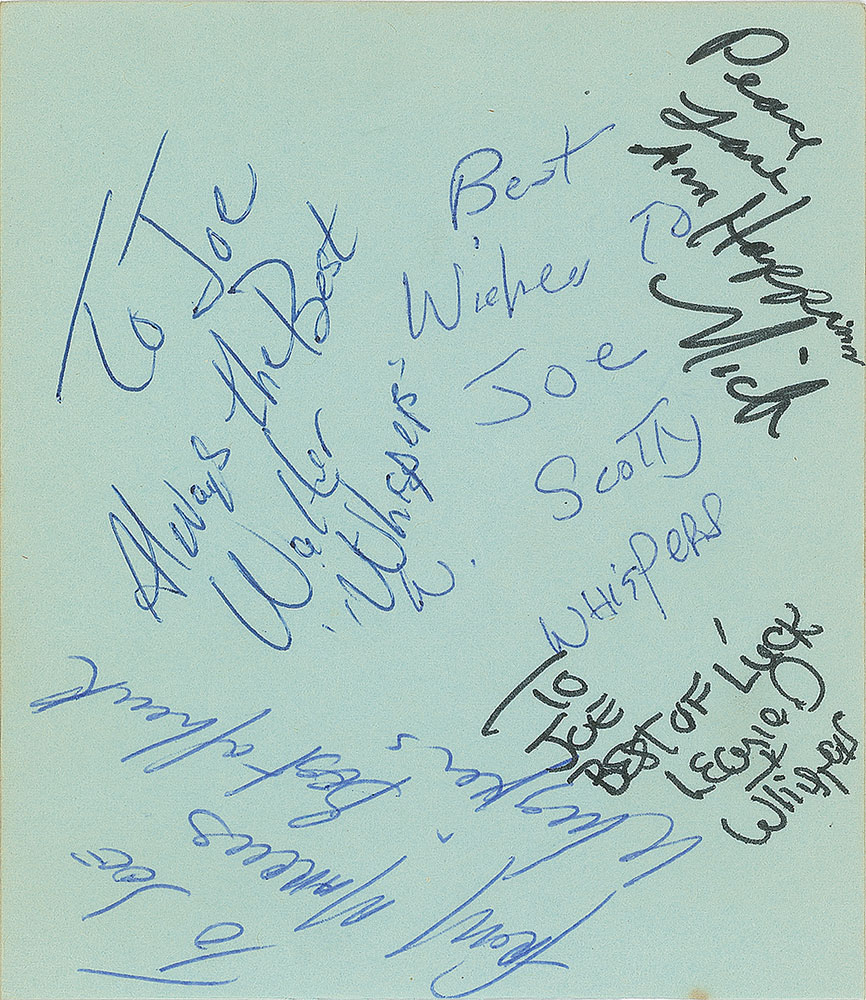 To Joe
Always the Best
Walter
"Whispers"
W.
Best
Wishes To
Joe
Scotty
Whispers
Peace
Love
Ann Happiness
Nick
To
JOE
BEST OF LUCK
Leavie
Whispers
To Joe
Best of luck
Marcus
Whisper's